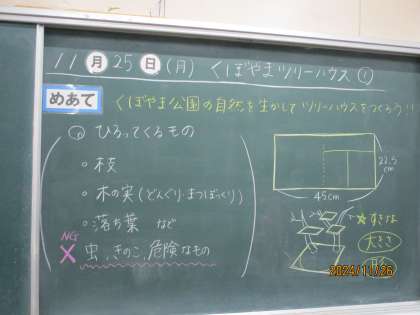 11月25日(月) くぼやまツリーハウス①
めあて くぼやま公園の自然を生かしてツリーハウスをつくろう!!
ひろってくるもの
○枝
○木の実(どんぐり・まつぼっくり)
○落ち葉 など
NG
× 虫、きのこ、危険なもの
22.5cm
45cm
☆すきな
大きさ
形
2024/11/26